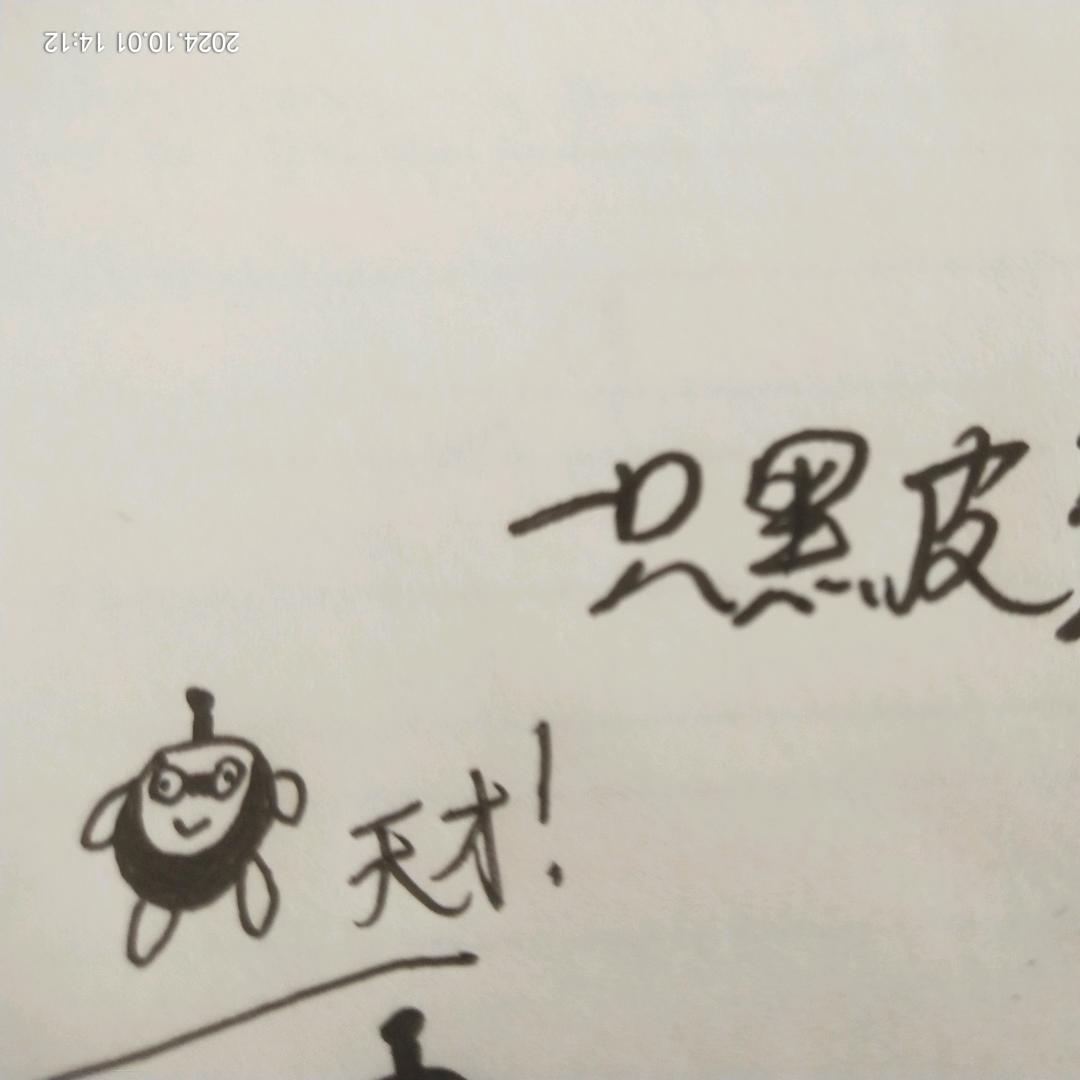 2024.10.01 14:12
一只黑皮
天才!